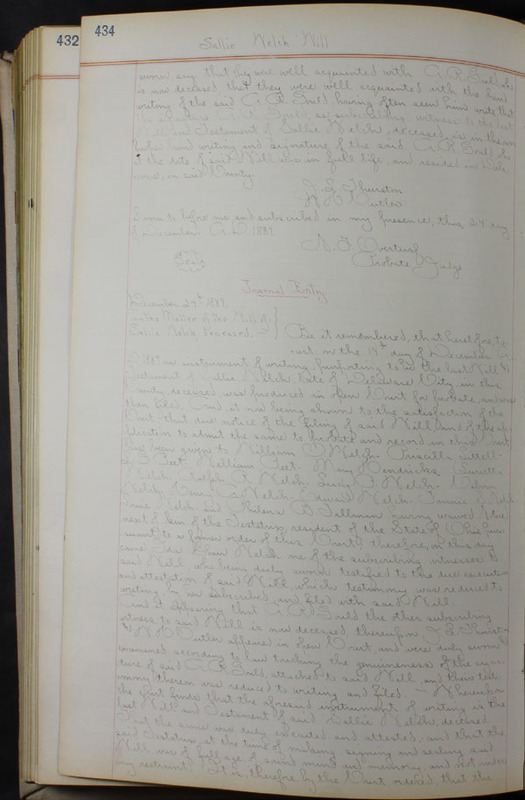 432
434
Sallie Welch Will
sworn say that they were well acquainted with A. R. Gould, who
is now deceased that they were well acquainted with the hand
writing of the said A. R. Gould having often seen him write that
the signature of said Gould, as subscribing witness to the last
Will and Testament of Sallie Welch, deceased, is in the own
hand writing and signature of the said A. R. Gould, who
at the date of said Will was in full life, and resided in Dela
ware, in said County.
J. L. Thurston
H. O. Butler
Sworn to before me and subscribed in my presence, this 27 day
of December A. D. 1889.
N. F. Overturf
Probate Judge
Seal
Journal Entry
December 27th 1889.
In the Matter of the Will of
Sallie Welch, Deceased.
Be it remembered, that heretofore, to
wit, on the 19th day of December A.
D. 1889 an instrument of writing, purporting to be the last Will &
Testament of Sallie Welch late of Delaware City, in this
County, deceased, was produced in open Court for probate, and was
then filed. And it now being shown to the satisfaction of the
Court that due notice of the filing of said Will and of the ap
plication to admit the same to probate and record in this Court
has been given to William Welch Priscilla
Peet, William Peet. May Hendricks.
Welch. Ralph A Welch. Welch.
Welch, Welch. Edward Welch. Fannie
Welch and D. Tillman having waived
next of kin of the Testatrix, resident of the State of Ohio pur
suant to a former order of this Court; therefore, on this day
came Welch one of the subscribing witnesses to
said Will who being duly sworn testified to the due execution
and attestation of said Will which testimony was reduced to
writing, by him subscribed, and filed with said Will.
And it appearing that A. R. Gould the other subscribing
witness to said Will is now deceased thereupon J. L. Thurston
& H. O. Butler appeared in open Court, and were duly sworn &
examined according to law touching the genuineness of the signa
ture of said A. R. Gould, attached to said Will, and their testi
mony thereon was reduced to writing and filed. Whereupon
the Court finds that the aforesaid instrument of writing is the
last Will and Testament of said Sallie Welch, deceased
That the same was duly executed and attested, and that the
said Testatrix at the time of making, signing and sealing said
Will was of full age of sound mind and memory and not under
any restraint. It is therefore by the Court ordered, that the